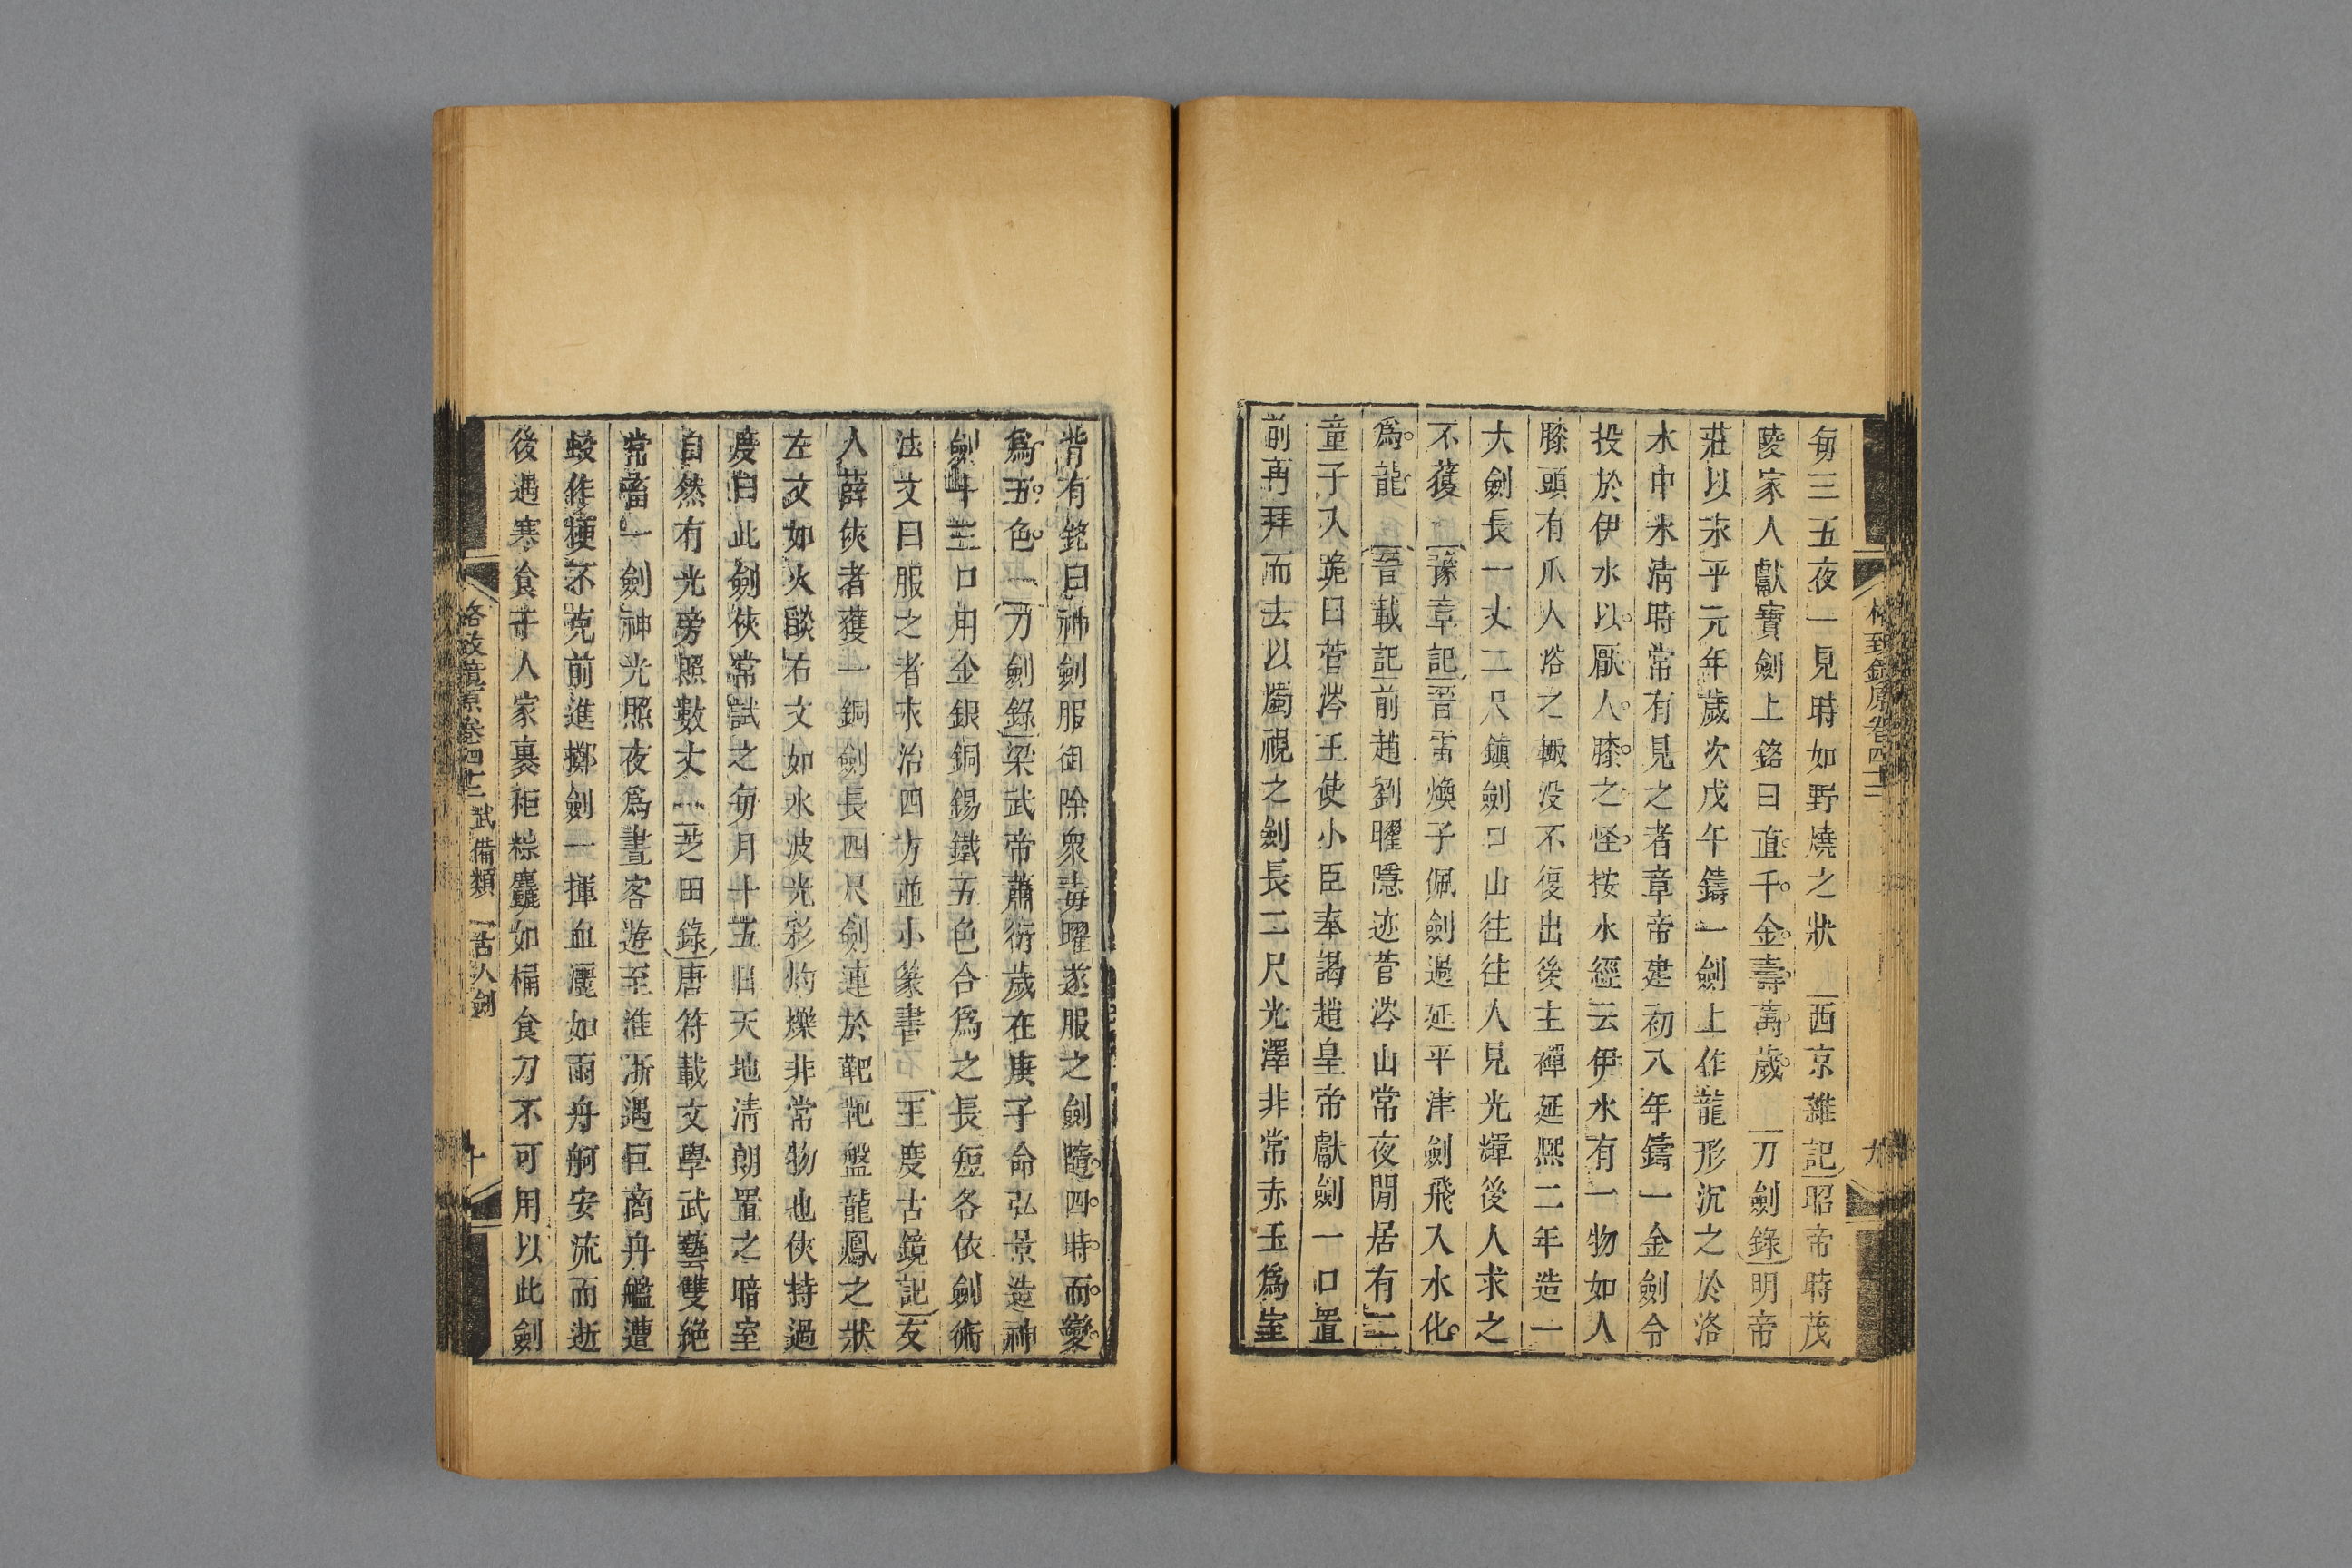 格致鏡原卷四十二
九
每三五夜一見時如野燒之狀　西京雜記昭帝時茂
陵家人獻寶劍上銘曰直千金壽萬歲　刀劍錄明帝
莊以永平元年歲次戊午鑄一劍上作龍形沉之於洛
水中水清時常有見之者章帝建初八年鑄一金劍令
投於伊水以厭人膝之怪按水經云伊水有一物如人
膝頭有爪人浴之輒没不復出後主禪延熙二年造一
大劍長一丈二尺鎮劍口山往往人見光輝後人求之
不獲　豫章記晉雷煥子佩劍過延平津劍飛入水化
爲龍　晉載記前趙劉曜隱迹菅涔山常夜閒居有二
童子入跪曰菅涔王使小臣奉謁趙皇帝獻劍一口置
前再拜而去以燭視之劍長二尺光澤非常赤玉爲室
背有銘曰神劍服御除衆毒曜遂服之劍隨四時而變
爲五色　刀劍錄梁武帝蕭衍歲在庚子命弘景造神
劍十三口用金銀銅錫鐵五色合爲之長短各依劍術
法文曰服之者永治四方並小篆書　王度古鏡記友
人薛俠者獲一銅劍長四尺劍連於靶靶盤龍鳳之狀
左文如火燄右文如水波光彩灼爍非常物也俠持過
度曰此劍俠常試之每月十五日天地清朗置之暗室
自然有光旁照數丈　芝田錄唐符載文學武藝雙絶
常畜一劍神光照夜爲晝客遊至淮浙遇巨商舟艦遭
蛟作梗不克前進擲劍一揮血灑如雨舟舸安流而逝
後遇寒食于人家裹秬粽麤如桶食刀不可用以此劍
格致鏡原卷四十二　武備類　古人劍
十